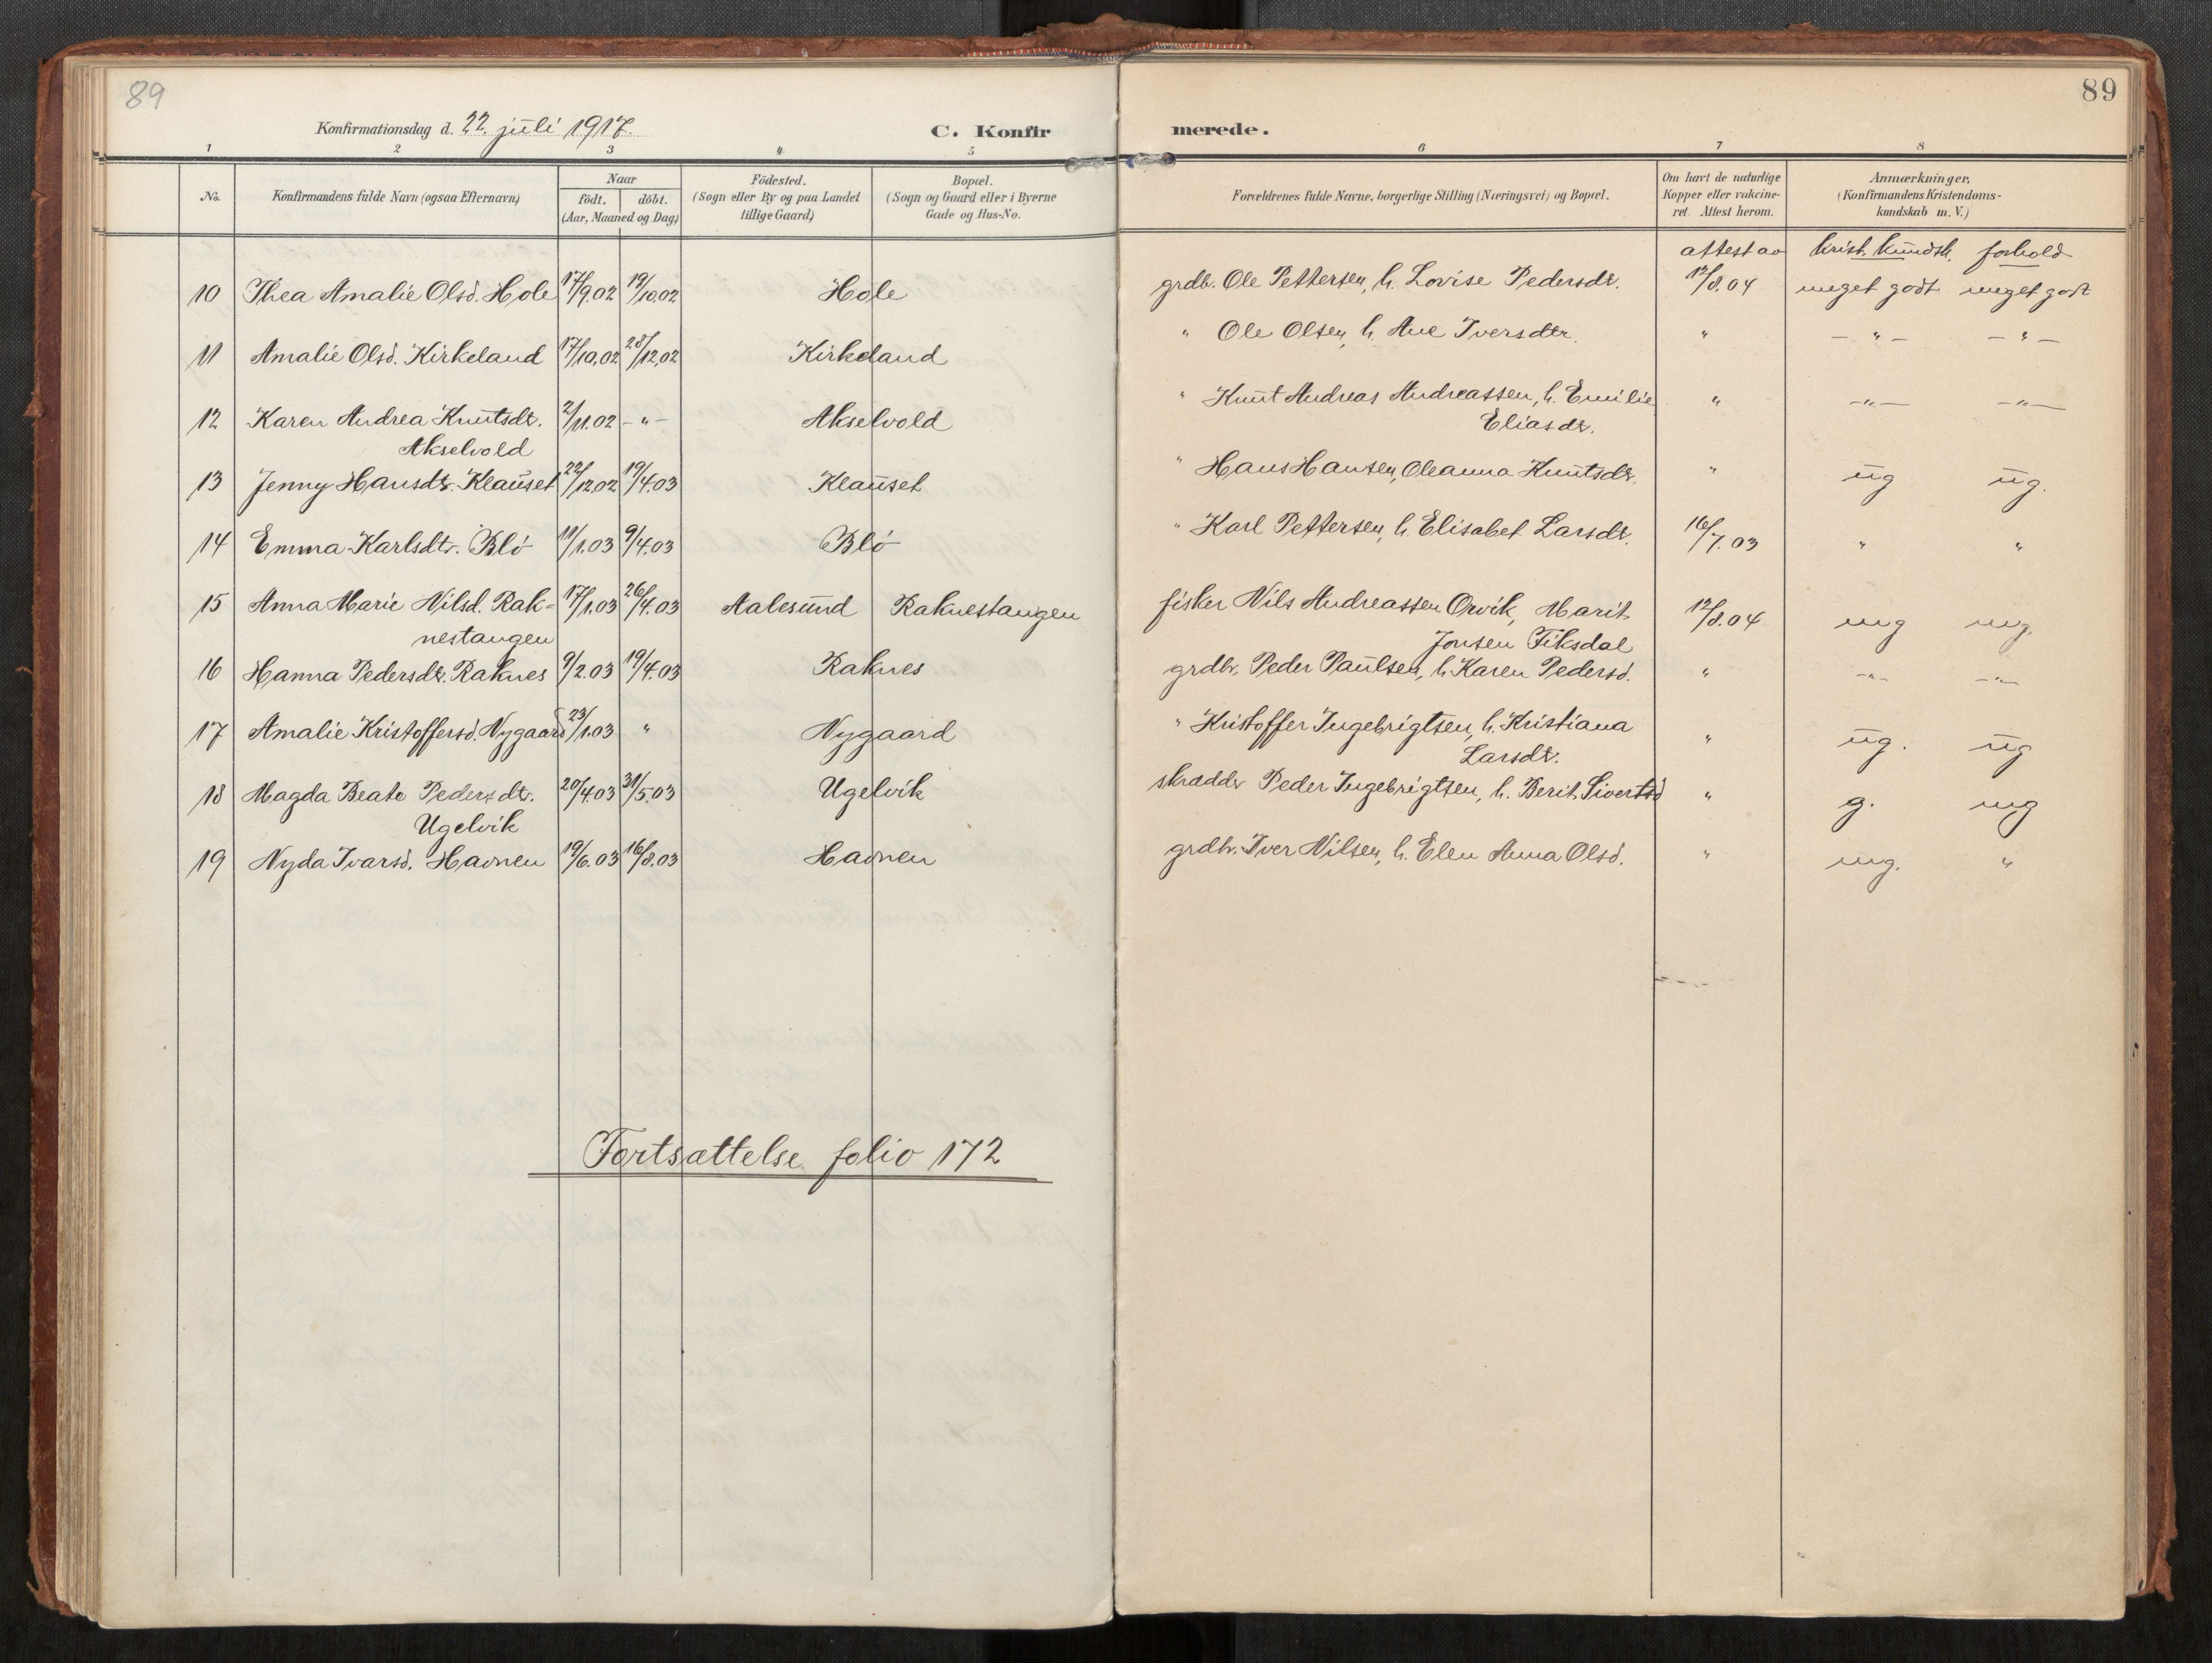 89
89
Konfirmationsdag d. 22. juli 1917.
C. Konfir
merede.
1 2 3 4 5 6 7 8
No.
Konfirmandens fulde Navn (ogsaa Efternavn)
Naar
født. døbt.
(Aar, Maaned og Dag)
Fødested.
(Sogn eller By og paa Landet
tillige Gaard)
Bopæl.
(Sogn og Gaard eller i Byerne
Gade og Hus-No.
Forældrenes fulde Navne, borgerlige Stilling (Næringsvei) og Bopæl.
Om havt de naturlige
Kopper eller vakcine-
ret. Attest herom.
Anmærkninger,
(Konfirmandens Kristendoms-
kundskab m. V.)
attest av krist. kundsk. forhold
10 Thea Amalie Olsd. Hole 17/9.02 19/10.02 Hole grdb. Ole Pettersen, h. Lovise Pedersdr. 12/8.04 meget godt meget godt
11 Amalie Olsd. Kirkeland 17/10.02 28/12.02 Kirkeland " Ole Olsen, h. Ane Iversdtr. " - " - - " -
12 Karen Andrea Knutsdr. 2/11.02 - " - Akselvold " Knut Andreas Andreassen, h. Emilie " - " - - " -
Akselvold Eliasdr.
13 Jenny Hansdr. Klauset 22/12.02 19/4.03 Klauset " Hans Hansen, Oleanna Knutsdr. " ug ug.
14 Emma Karlsdtr. Blø 11/1.03 9/4.03 Blø " Karl Pettersen, h. Elisabet Larsdr. 16/7.03 " "
15 Anna Marie Nilsd. Rak- 17/1.03 26/4.03 Aalesund Raknestangen fisker Nils Andreassen Orvik, Marit 12/8.04 mg mg.
nestangen Jonsen Fiksdal
16 Hanna Pedersdr. Raknes 9/2.03 19/4.03 Raknes grdbr. Peder Paulsen, h. Karen Pedersd. " - " - - " -
17 Amalie Kristoffersd. Nygaard 23/1.03 " Nygaard " Kristoffer Ingebrigtsen, h. Kristiana " ug. ug
Larsdr.
18 Magda Beate Pedersdtr. 20/4.03 31/5.03 Ugelvik skrædder Peder Ingebrigtsen, h. Berit Sivertsd " g. mg
Ugelvik
19 Nyda Ivarsd. Havnen 19/6.03 16/8.03 Havnen grdbr. Iver Nilsen, h. Elen Anna Olsd. " mg. "
Fortsættelse folio 172